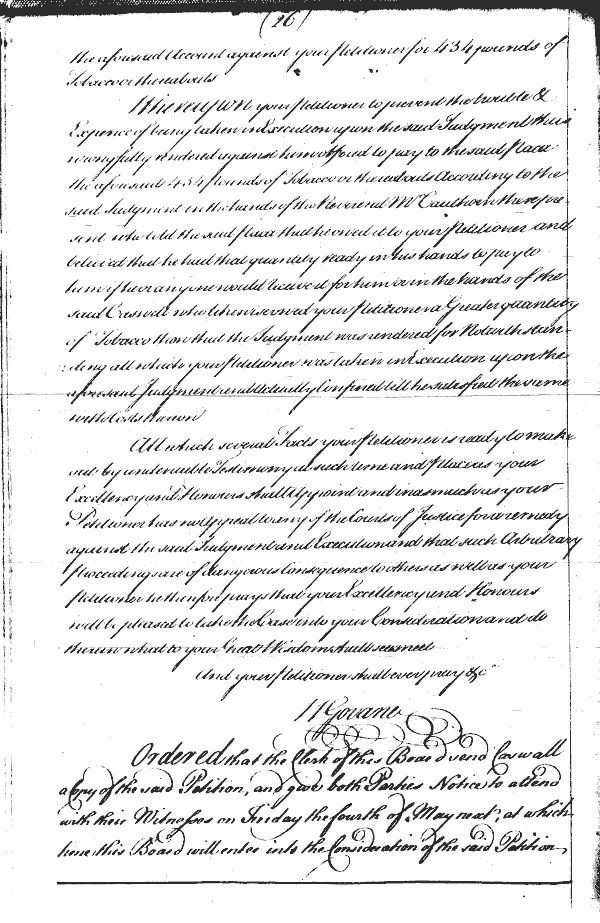 (26)
the aforesaid Account against your Petitioner for 434 pounds of
Tobacco or thereabouts
Whereupon your Petitioner to prevent the trouble &
Expence of being taken in Execution upon the said Judgment thus
wrongfully rendered against him offered to pay to the said Place
the aforesaid 434 pounds of Tobacco or thereabouts According to the
said Judgment in the hands of the Reverend Mr then pre-
sent who told the said Place that he owed it to your Petitioner and
believed that he had that quantity ready in his hands to pay to
him if he or any one would receive it for him or in the hands of the
said who then owed your Petitioner a Greater quantity
of Tobacco than that the Judgment was rendered for Notwithstan-
ding all which your Petitioner was taken in Execution upon the
aforesaid Judgment and Actually Confined till he satisfied the same
with Costs thereon
All which several Facts your Petitioner is ready to make
out by undeniable Testimony at such time and Place as your
Excellency and Honours shall Appoint and inasmuch as your
Petitioner has no Appeal to any of the Courts of Justice for a remedy
against the said Judgment and Execution and that such Arbitrary
Proceedings are of dangerous Consequence to others as well as your
Petitioner he therefore prays that your Excellency and Honours
will be pleased to take the Case into your Consideration and do
therein what to your Great Wisdom shall seem meet
And your Petitioner shall ever pray &c
Govane
Ordered that the Clerk of this Board send Caswall
a Copy of the said Petition, and give both Parties Notice to attend
with their Witnesses on Friday the fourth of May next, at which
time this Board will enter into the Consideration of the said Petition,